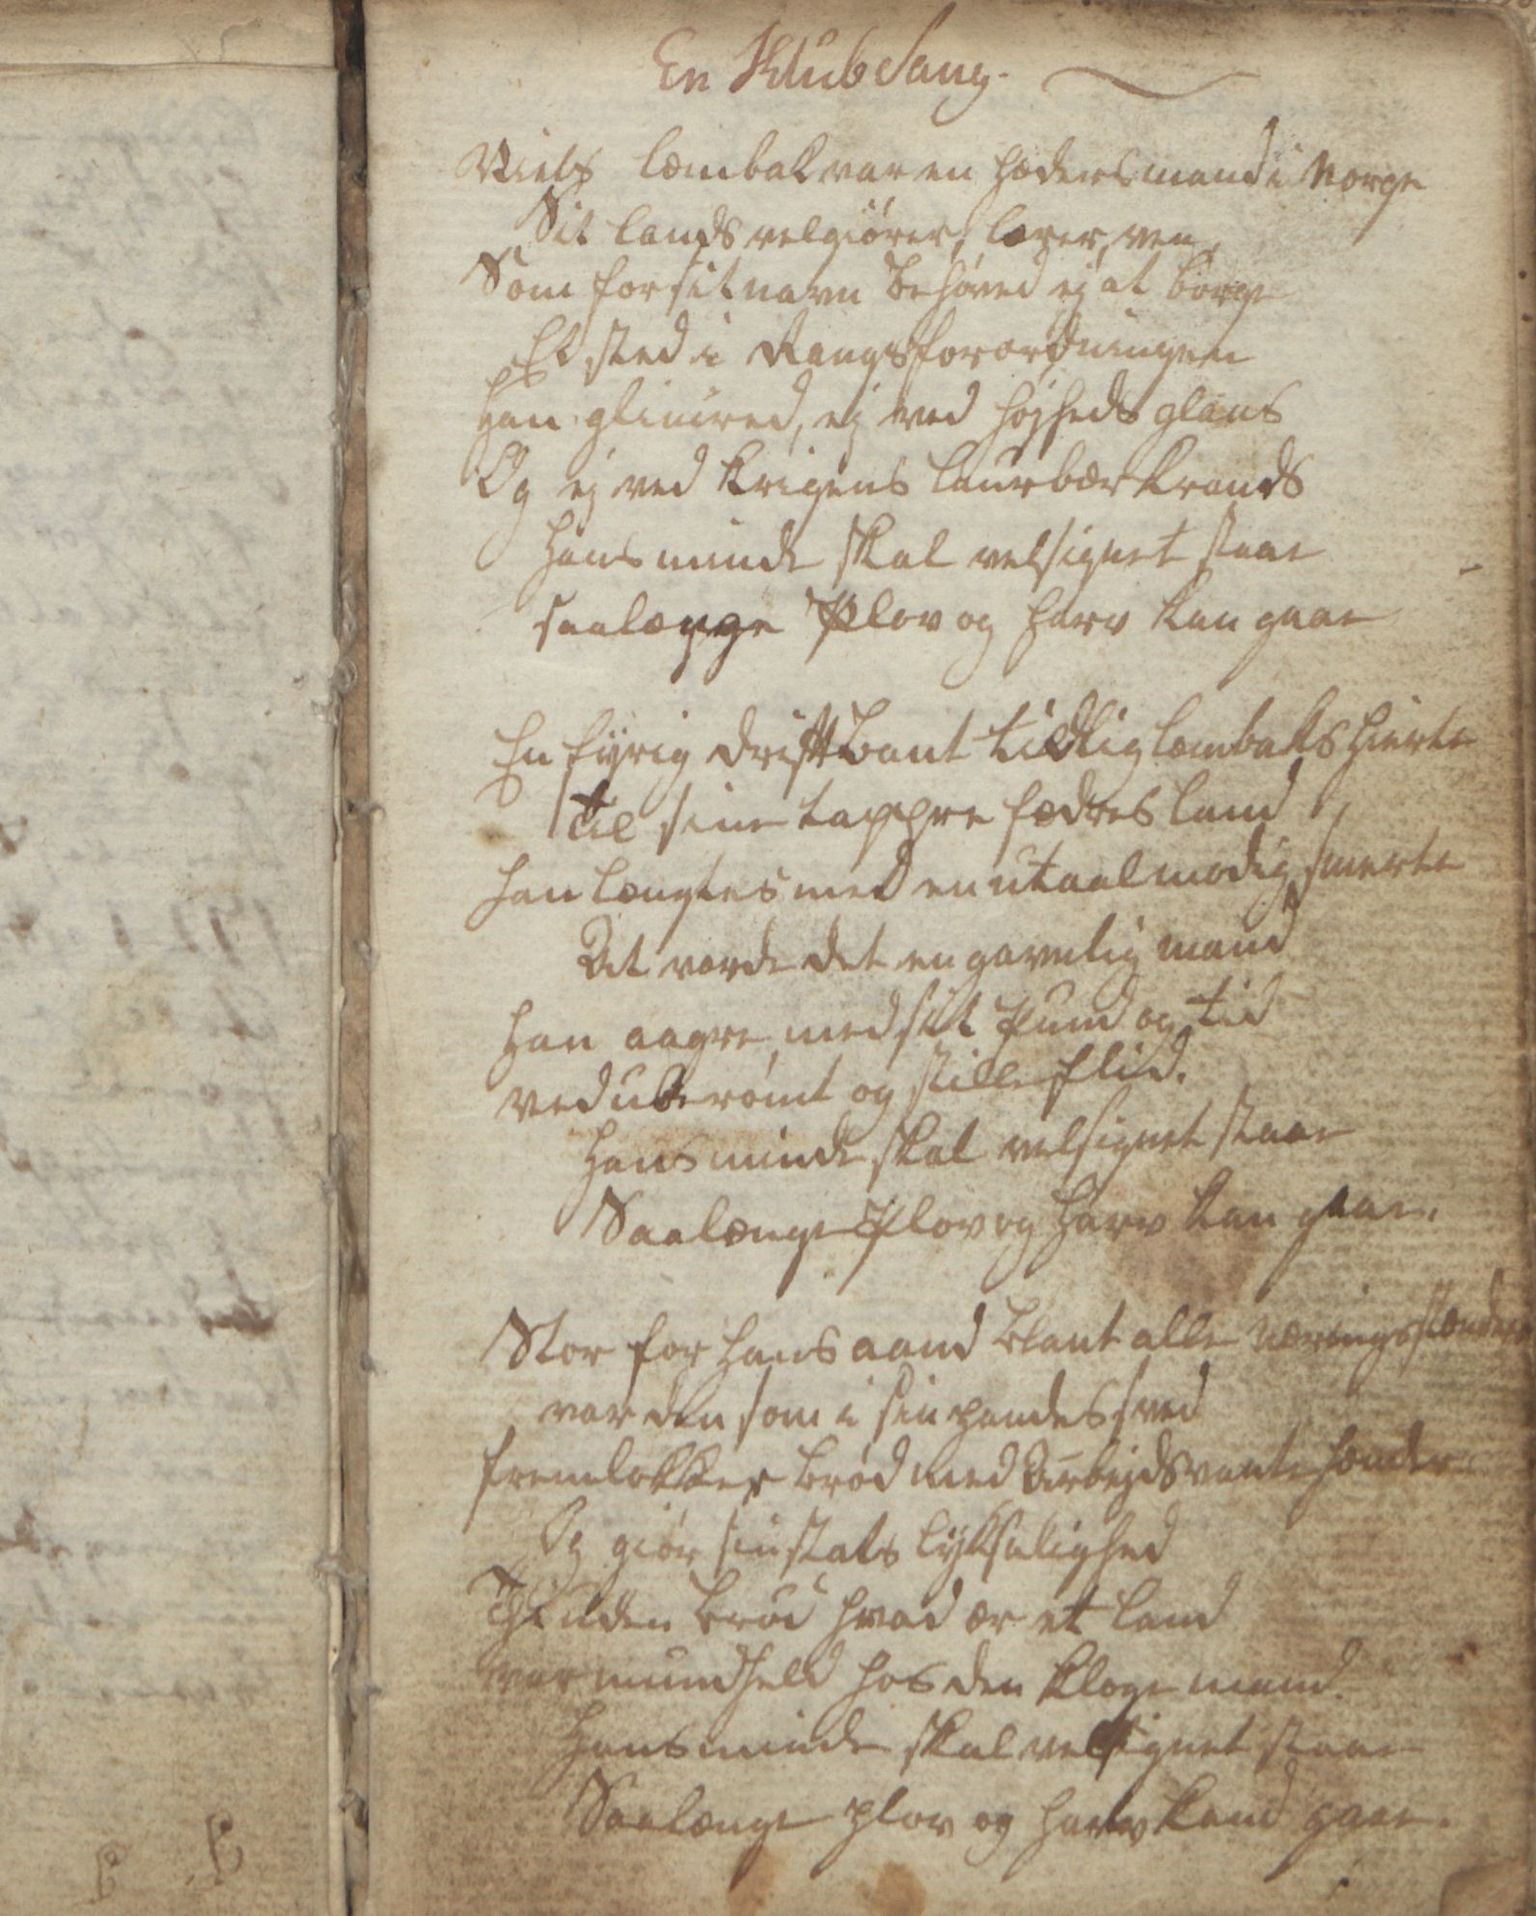 En Klub Sang.
Niels læmbak var en hædersmand i Norge
Sit lands velgiører, lærer, ven,
Som for sit navn behøved ej at borge
Et sted i Rangsforordningen
Han glimred, ej ved højheds glans
Og ej ved krigens laurbær krands
Hans minde skal velsignet staae
saalænge Plov og harv kan gaae
En fyrig drift bant tidlig læmbaks hierte
til sine tappre fædres land
han længtes med en utaalmodig smerte
At vorde det en gavnlig mand
Han aagre med sit pund og tid
ved uberømt og stille flid.
Hans minde skal velsignet staae
Saalænge Plov og Harv kan gaae.
Stor for hans aand blant alle næringsstænder
var den som i sin pandes sved
fremlokker brød med Arbejdsvante hænder
Og giør sin stats lyksalighed
Thi uden brød hvad er et land
var mundheld hos den kloge mand.
Hans minde skal velsignet staae
Saalænge plov og harv kand gaae.